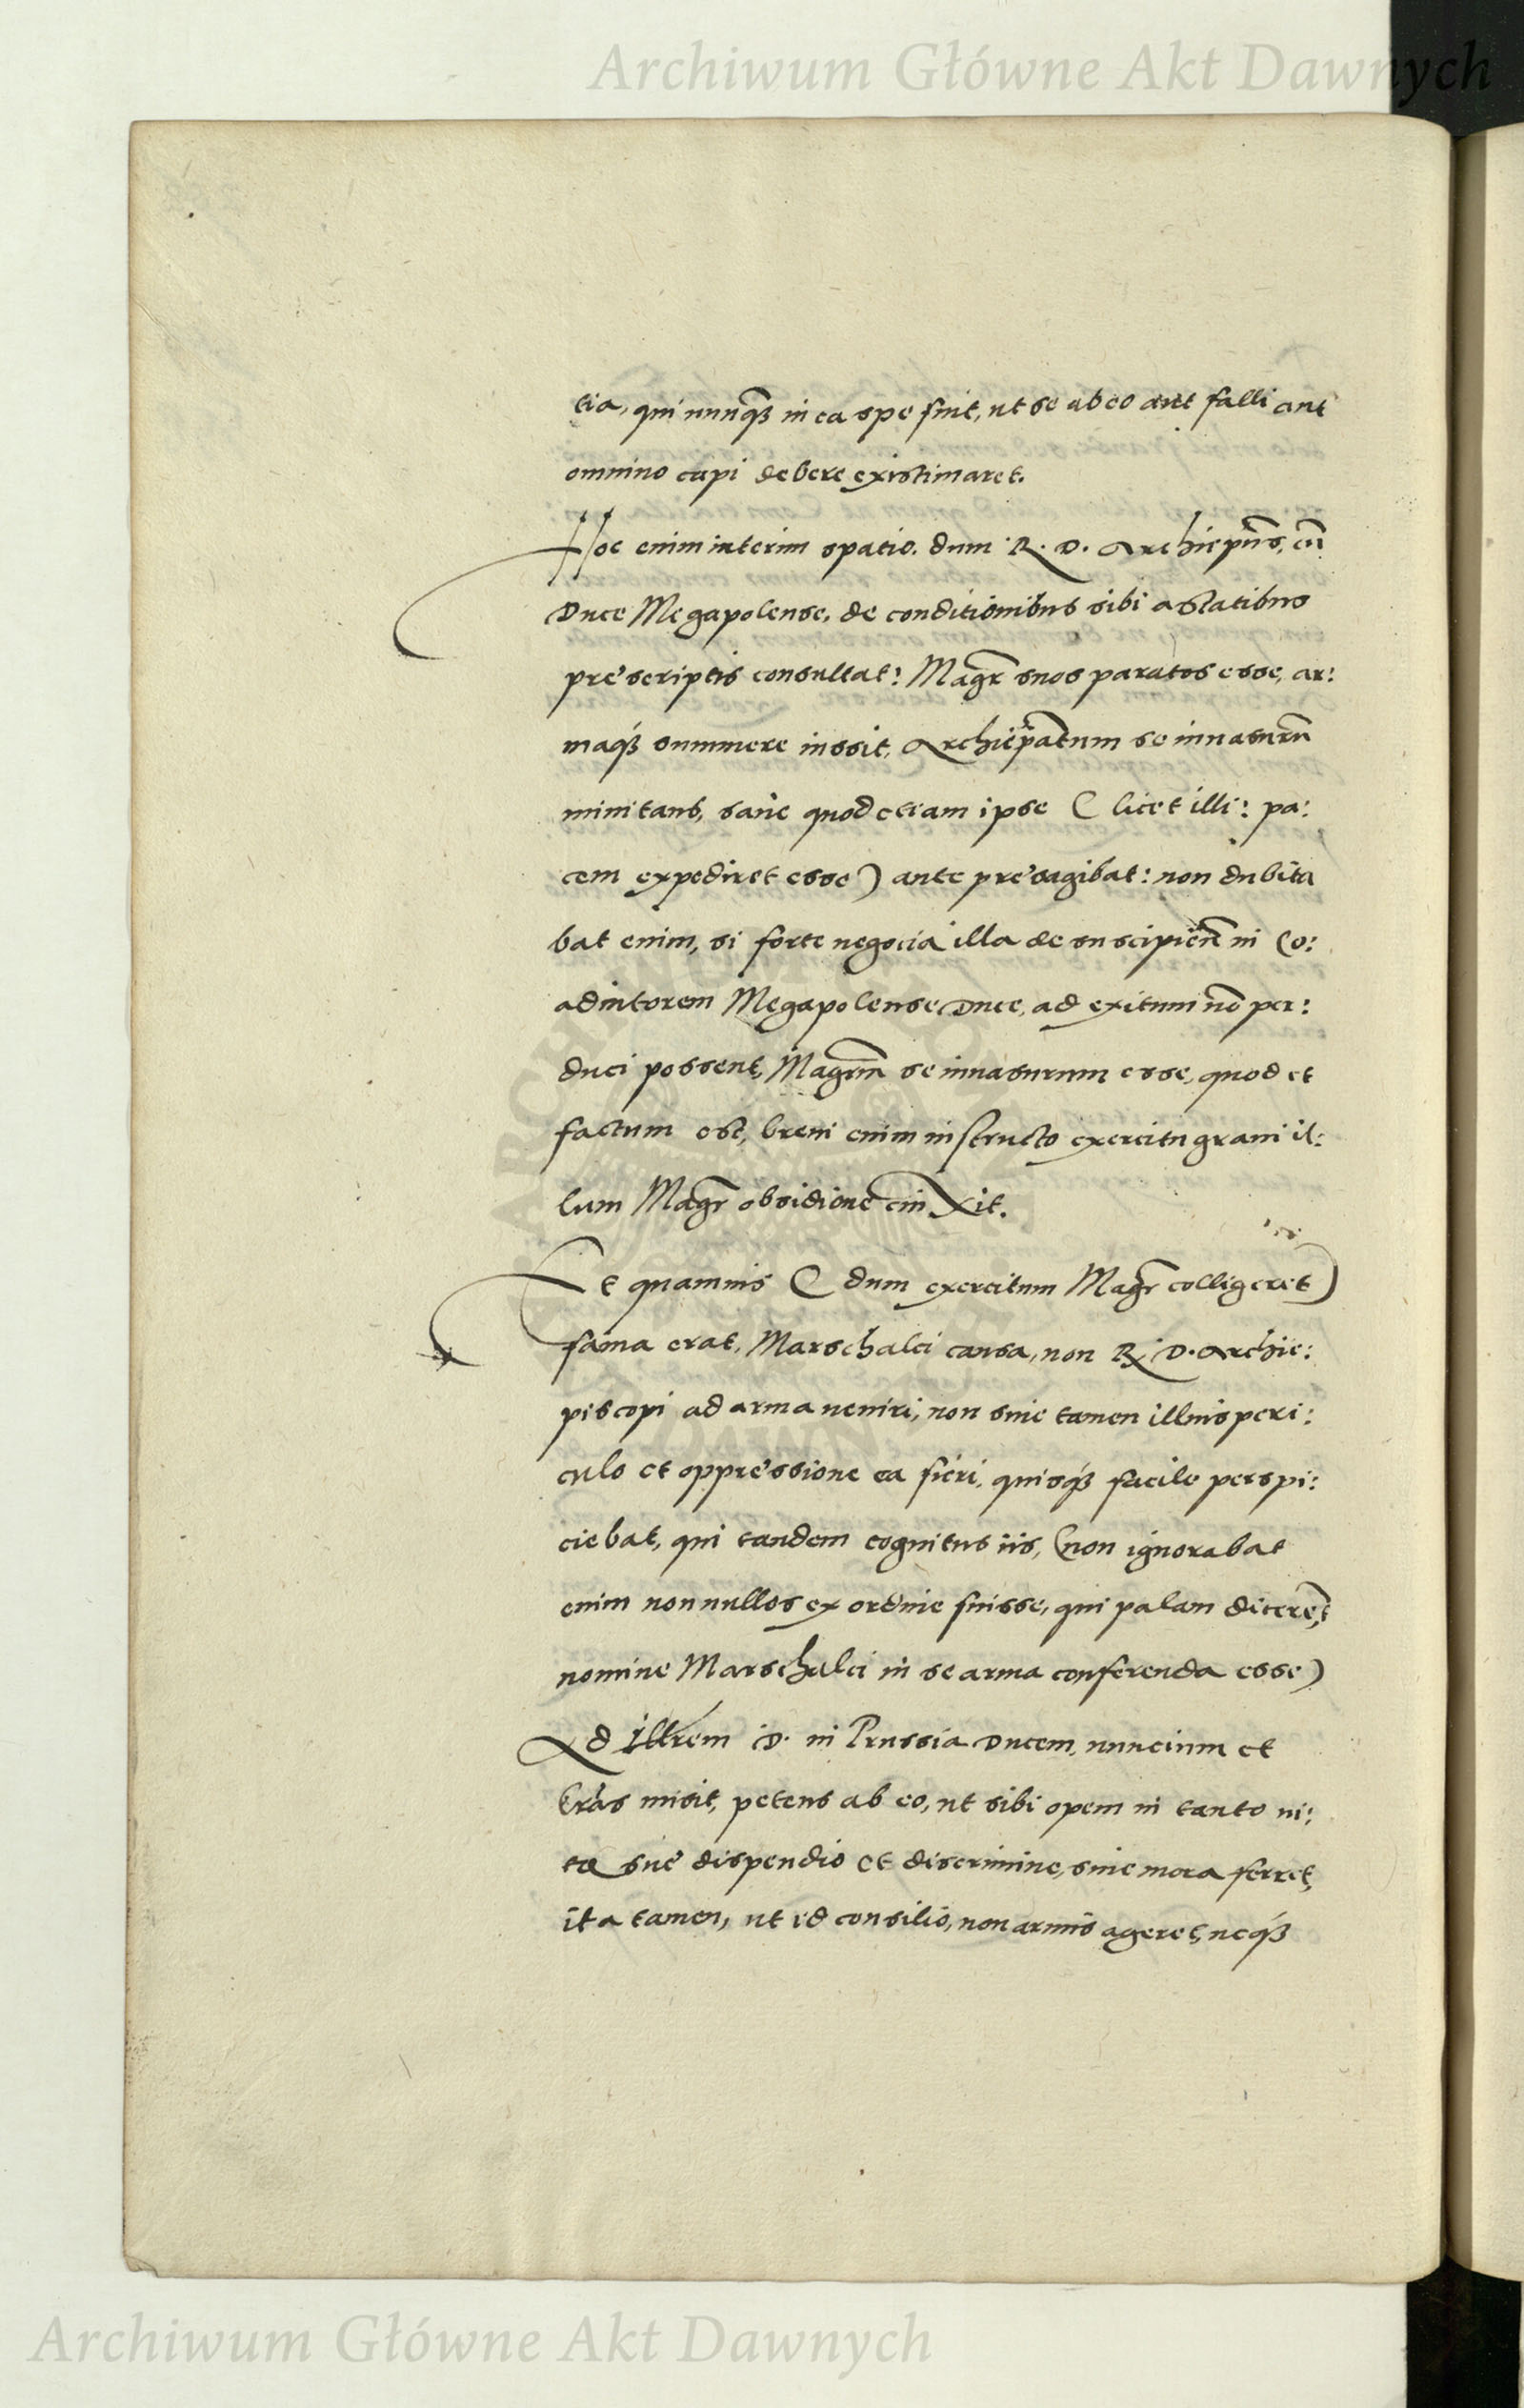 Archiwum Główne Akt Dawnych
tia, qui nunq̃ꝫ in ea spe fuit, ut se ab eo aut falli aut
omnino capi debere existimaret.
Hoc enim interim spatio. dum R. D. Archiepũs, cũ
Duce Megapolense, de conditionibus sibi a Statibus
pręscriptis consultat: Magr̃ suos paratos esse, ar:
maqꝫ summere iussit, Archiep̃atum se inuasurũ
minitans, sane quod etiam ipse ( licet illi: pa:
cem expediret esse) ante pręsagibat: non dubita
bat enim, si forte negocia illa de suscipień in Co:
adiutorem Megapolense Duce, ad exitum nõ per:
duci possent, Magrũm se inuasurum esse, quod et
factum est, breui enim instructo exercitu graui il:
lum Magr̃ obsidione cinxit.
Et quamuis ( dum exercitum Magr̃ colligeret)
fama erat, Marschalci causa, non R. D. Archie:
piscopi ad arma ueniri, non sine tamen illius peri:
culo et oppręssione ea fieri, quisqꝫ facile perspi:
ciebat, qui tandem cognitus iis, (non ignorabat
enim nonnullos ex ordine fuisse, qui palam dicerẽt,
nomine Marschalci in se arma conferenda esse)
Ad Illrem D. in Prussia Ducem, nuncium et
lrãs misit, petens ab eo, ut sibi opem in tanto ui:
tæ suę dispendio et discrimine, sine mora ferret,
ita tamen, ut id consilio, non armis ageret, neqꝫ
Archiwum Główne Akt Dawnych